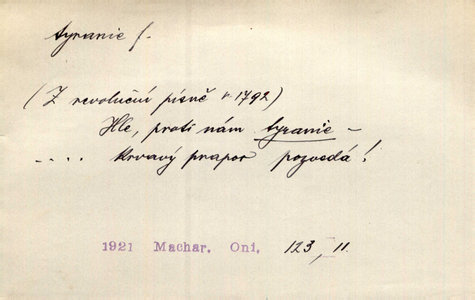 tyranie f.
(Z revoluční písně r. 1792)
Hle, proti nám tyranie –
.... krvavý prapor pozvedá!
1921 Machar. Oni, 123, II.